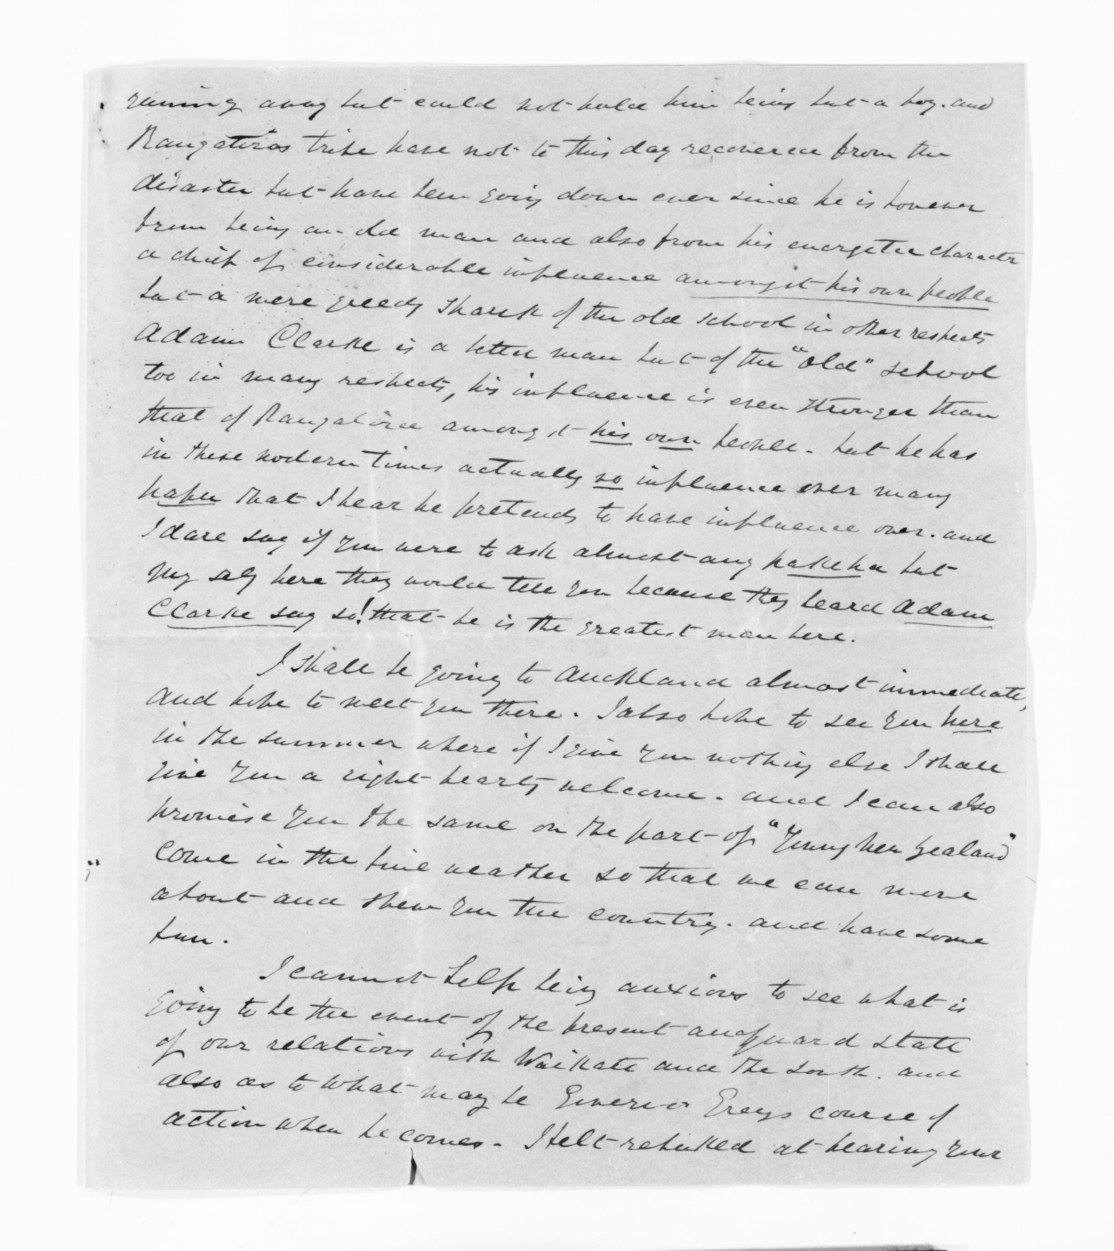 running away but could not hold him being but a boy. and
Rangatiras tribe have not to this day recovered from the
disaster but have been going down ever since he is however
from being an old man and also from his energetic character
a chief of considerable influence amongst his own people
but a mere greedy shark of the old school in other respects
Adam Clarke is a better man but of the "old" school
too in many respects, his influence is even stronger than
that of Rangatira amongst his own people. but he has
in these modern times actually no influence over many
hapu that I hear he pretends to have influence over. and
I dare say if you were to ask almost any pakeha but
my self here they would tell you because they heard Adam
Clarke say so! that he is the greatest man here.
I shall be going to Auckland almost immediate,
and hope to meet you there. I also hope to see you here
in the summer where if I give you nothing else I shall
give you a right hearty welcome. and I can also
promise you the same on the part of "Young New Zealand"
come in the fine weather so that we can move
about and shew you the country. and have some
fun.
I cannot help being anxious to see what is
going to be the event of the present awkward state
of our relations with Waikato and the South. and
also as to what may be Governor Greys course of
action when he comes. I felt rebuked at hearing your